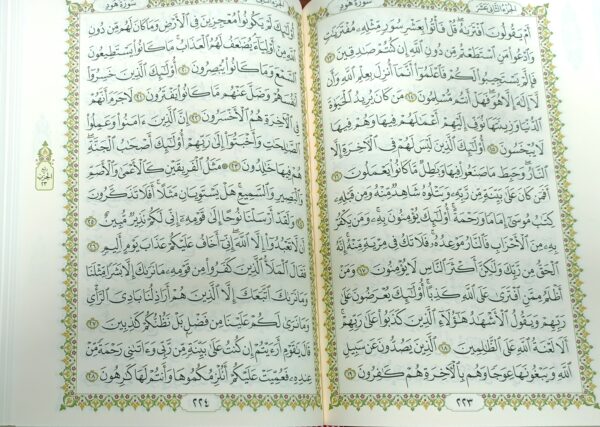 الجزء الثاني عشر
سورة هود
أَمْ يَقُولُونَ ٱفْتَرَىٰهُ قُلْ فَأْتُوا۟ بِعَشْرِ سُوَرٍ مِّثْلِهِۦ مُفْتَرَيَٰتٍ
وَٱدْعُوا۟ مَنِ ٱسْتَطَعْتُم مِّن دُونِ ٱللَّهِ إِن كُنتُمْ صَٰدِقِينَ ١٣
فَإِلَّمْ يَسْتَجِيبُوا۟ لَكُمْ فَٱعْلَمُوٓا۟ أَنَّمَآ أُنزِلَ بِعِلْمِ ٱللَّهِ وَأَن
لَّآ إِلَٰهَ إِلَّا هُوَ فَهَلْ أَنتُم مُّسْلِمُونَ ١٤ مَن كَانَ يُرِيدُ ٱلْحَيَوٰةَ
ٱلدُّنْيَا وَزِينَتَهَا نُوَفِّ إِلَيْهِمْ أَعْمَٰلَهُمْ فِيهَا وَهُمْ فِيهَا
لَا يُبْخَسُونَ ١٥ أُو۟لَٰٓئِكَ ٱلَّذِينَ لَيْسَ لَهُمْ فِى ٱلْءَاخِرَةِ إِلَّا
ٱلنَّارُ وَحَبِطَ مَا صَنَعُوا۟ فِيهَا وَبَٰطِلٌ مَّا كَانُوا۟ يَعْمَلُونَ ١٦
أَفَمَن كَانَ عَلَىٰ بَيِّنَةٍ مِّن رَّبِّهِۦ وَيَتْلُوهُ شَاهِدٌ مِّنْهُ وَمِن قَبْلِهِۦ
كِتَٰبُ مُوسَىٰٓ إِمَامًا وَرَحْمَةً أُو۟لَٰٓئِكَ يُؤْمِنُونَ بِهِۦ وَمَن يَكْفُرْ
بِهِۦ مِنَ ٱلْأَحْزَابِ فَٱلنَّارُ مَوْعِدُهُۥ فَلَا تَكُ فِى مِرْيَةٍ مِّنْهُ إِنَّهُ
ٱلْحَقُّ مِن رَّبِّكَ وَلَٰكِنَّ أَكْثَرَ ٱلنَّاسِ لَا يُؤْمِنُونَ ١٧ وَمَنْ
أَظْلَمُ مِمَّنِ ٱفْتَرَىٰ عَلَى ٱللَّهِ كَذِبًا أُو۟لَٰٓئِكَ يُعْرَضُونَ عَلَىٰ
رَبِّهِمْ وَيَقُولُ ٱلْأَشْهَٰدُ هَٰٓؤُلَآءِ ٱلَّذِينَ كَذَبُوا۟ عَلَىٰ رَبِّهِمْ
أَلَا لَعْنَةُ ٱللَّهِ عَلَى ٱلظَّٰلِمِينَ ١٨ ٱلَّذِينَ يَصُدُّونَ عَن سَبِيلِ
ٱللَّهِ وَيَبْغُونَهَا عِوَجًا وَهُم بِٱلْءَاخِرَةِ هُمْ كَٰفِرُونَ ١٩
٢٢٣
سورة هود
أُو۟لَٰٓئِكَ لَمْ يَكُونُوا۟ مُعْجِزِينَ فِى ٱلْأَرْضِ وَمَا كَانَ لَهُم مِّن
دُونِ ٱللَّهِ مِنْ أَوْلِيَآءَ يُضَٰعَفُ لَهُمُ ٱلْعَذَابُ مَا كَانُوا۟ يَسْتَطِيعُونَ
ٱلسَّمْعَ وَمَا كَانُوا۟ يُبْصِرُونَ ٢٠ أُو۟لَٰٓئِكَ ٱلَّذِينَ خَسِرُوٓا۟
أَنفُسَهُمْ وَضَلَّ عَنْهُم مَّا كَانُوا۟ يَفْتَرُونَ ٢١ لَا جَرَمَ أَنَّهُمْ
فِى ٱلْءَاخِرَةِ هُمُ ٱلْأَخْسَرُونَ ٢٢ إِنَّ ٱلَّذِينَ ءَامَنُوا۟ وَعَمِلُوا۟
ٱلصَّٰلِحَٰتِ وَأَخْبَتُوٓا۟ إِلَىٰ رَبِّهِمْ أُو۟لَٰٓئِكَ أَصْحَٰبُ ٱلْجَنَّةِ
هُمْ فِيهَا خَٰلِدُونَ ٢٣ مَثَلُ ٱلْفَرِيقَيْنِ كَٱلْأَعْمَىٰ وَٱلْأَصَمِّ
وَٱلْبَصِيرِ وَٱلسَّمِيعِ هَلْ يَسْتَوِيَانِ مَثَلًا أَفَلَا تَذَكَّرُونَ
٢٤ وَلَقَدْ أَرْسَلْنَا نُوحًا إِلَىٰ قَوْمِهِۦٓ إِنِّى لَكُمْ نَذِيرٌ مُّبِينٌ ٢٥
أَن لَّا تَعْبُدُوٓا۟ إِلَّا ٱللَّهَ إِنِّىٓ أَخَافُ عَلَيْكُمْ عَذَابَ يَوْمٍ أَلِيمٍ ٢٦
فَقَالَ ٱلْمَلَأُ ٱلَّذِينَ كَفَرُوا۟ مِن قَوْمِهِۦ مَا نَرَىٰكَ إِلَّا بَشَرًا مِّثْلَنَا
وَمَا نَرَىٰكَ ٱتَّبَعَكَ إِلَّا ٱلَّذِينَ هُمْ أَرَاذِلُنَا بَادِىَ ٱلرَّأْىِ
وَمَا نَرَىٰ لَكُمْ عَلَيْنَا مِن فَضْلٍۭ بَلْ نَظُنُّكُمْ كَٰذِبِينَ ٢٧
قَالَ يَٰقَوْمِ أَرَءَيْتُمْ إِن كُنتُ عَلَىٰ بَيِّنَةٍ مِّن رَّبِّى وَءَاتَىٰنِى رَحْمَةً مِّنْ
عِندِهِۦ فَعُمِّيَتْ عَلَيْكُمْ أَنُلْزِمُكُمُوهَا وَأَنتُمْ لَهَا كَٰرِهُونَ ٢٨
٢٢٤